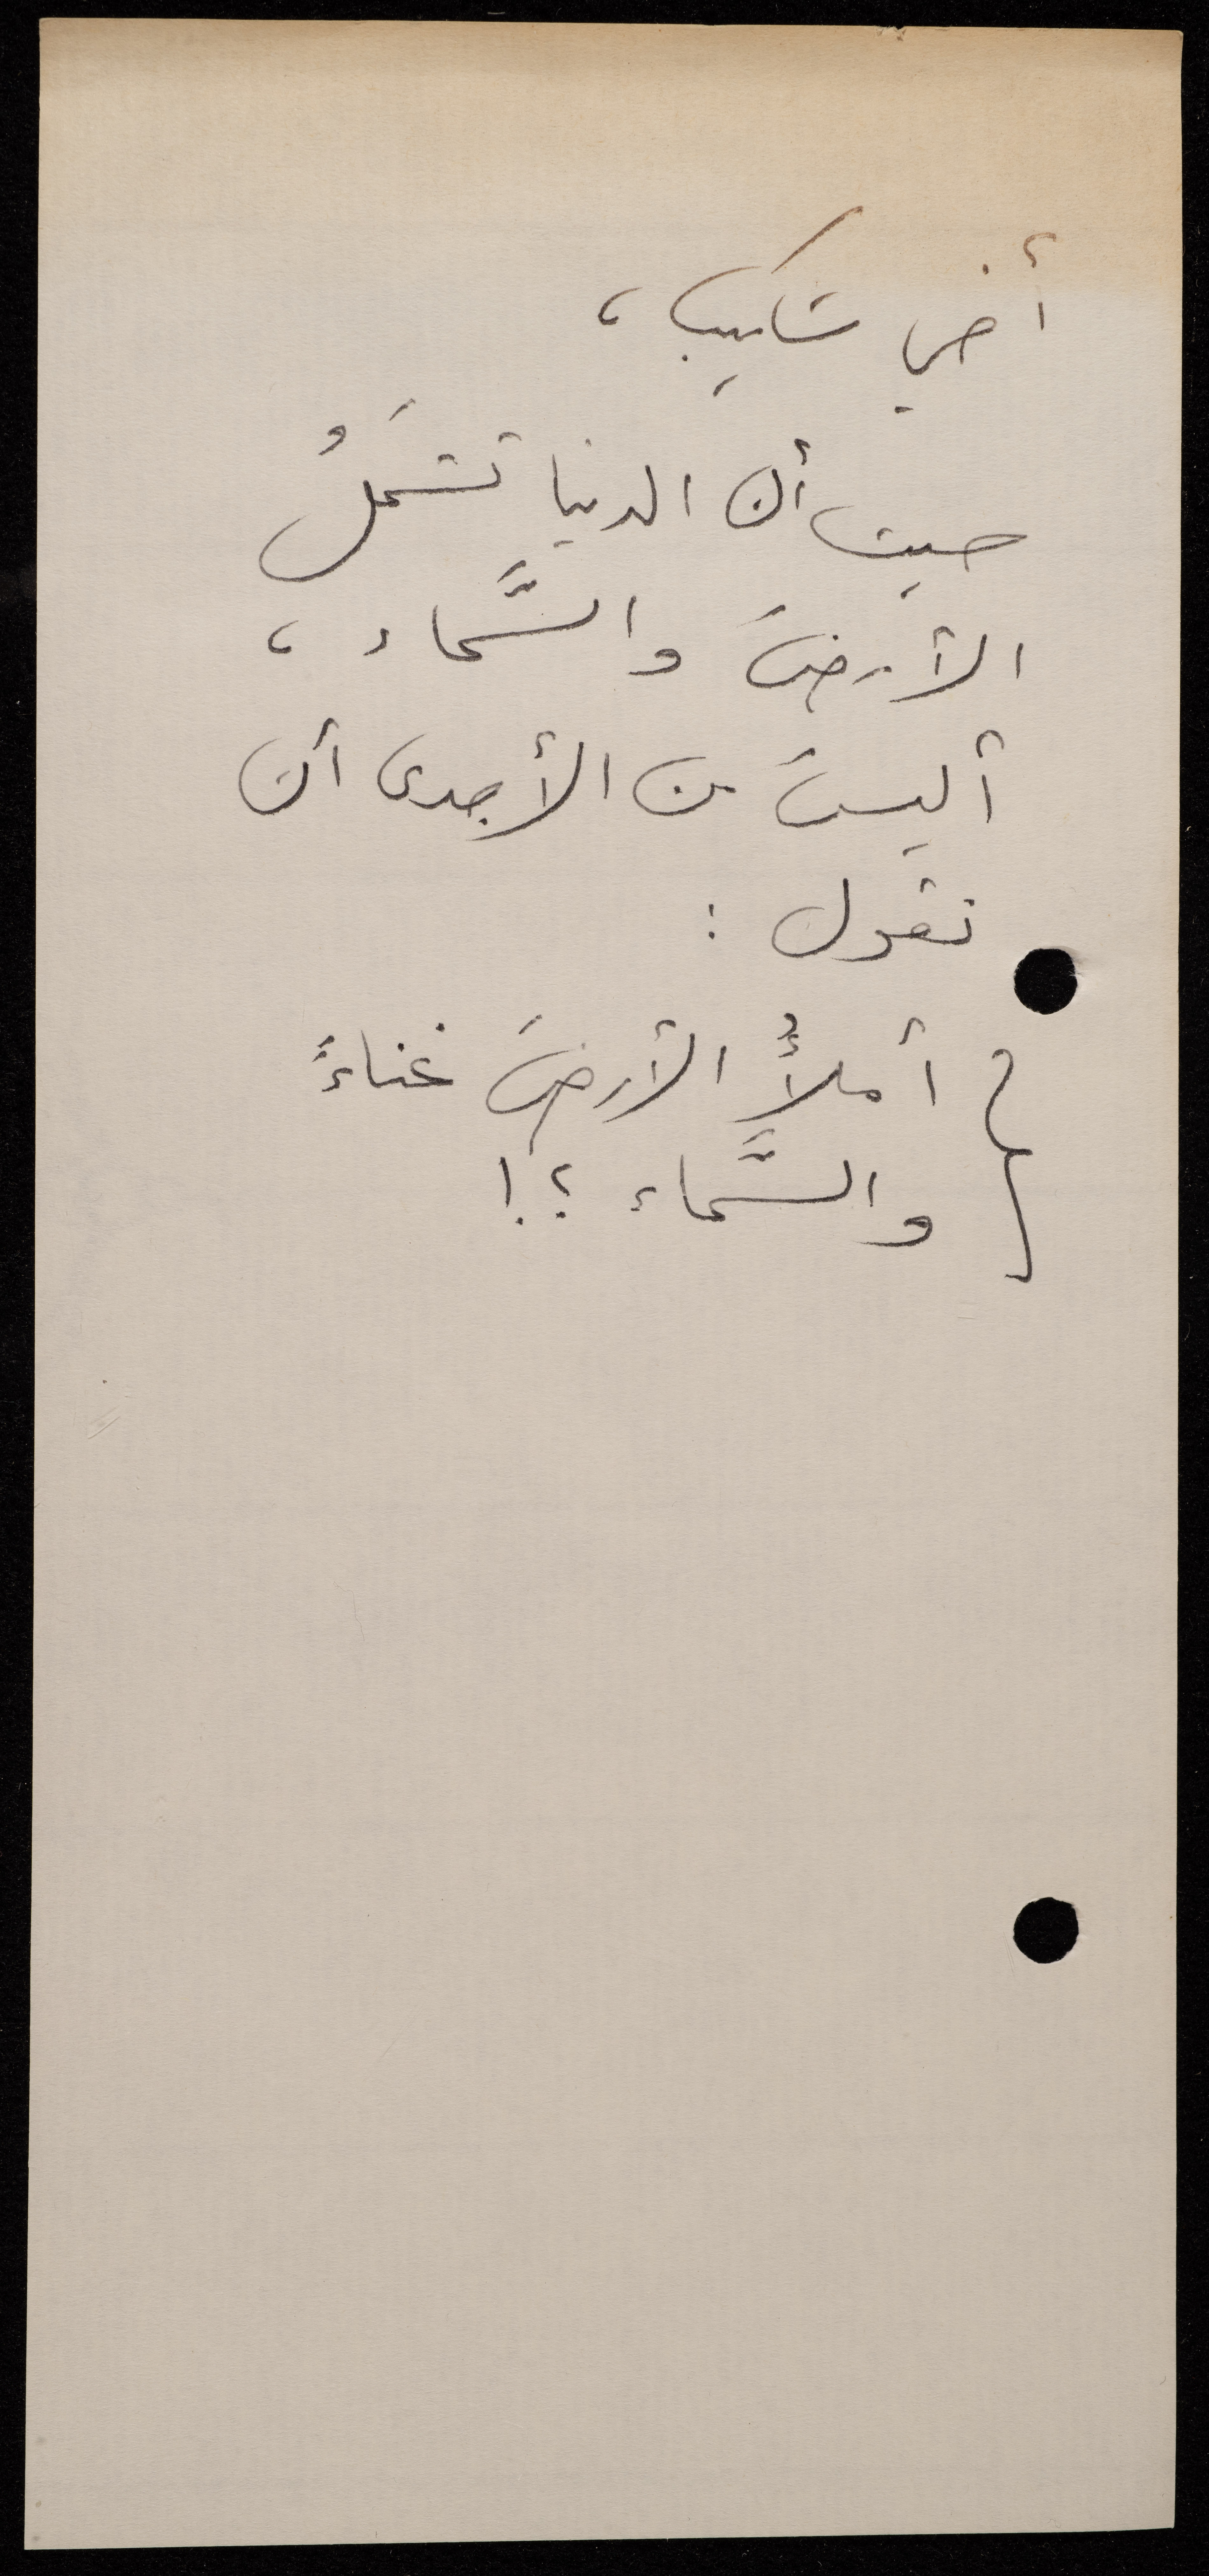 أخي شكيب،
حيث أن الدنيا تشمَلُ
الأرضَ والسَّماء،
أليسَ من الأجدى أن
نقول:
أملأُ الأرضَ غناءً
والسَّماء؟!